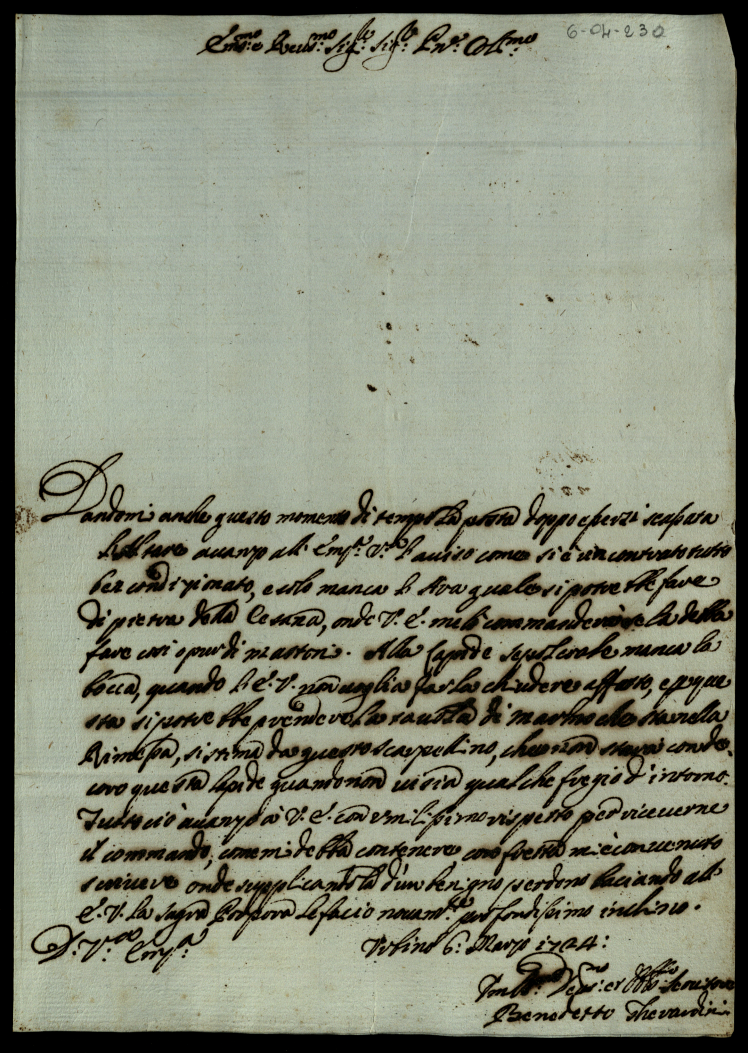 6-04-230
Em.mo e Rev.mo Sig.re Sig.re Pn.e Coll.mo
Dandomi anche questo momento di tempo la posta doppo esserzi scapata
avanzo all' Em.a V.a l'aviso come si è incontrato tutto
ben condizionato, e solo manca quale si potrebbe fare
di pietra della Cesana, onde V. E. mi commanderà se la debba
fare così o pur di mattoni. Alla lapide sepolcrale manca la
bocca, quando l' E. V. non voglia farla chiudere affatto, e per que
sta si potrebbe prendere la tavola di marmo che sta nella
Rimessa, si stima da questo scarpellino, che non starà con de
coro questa lapide quando non vi sia qualche fregio d'intorno.
Tutto ciò avanzo à V. E. con umilissimo rispetto per riceverne
il commando, come mi debba contenere, con fretta mi è convenuto
scrivere onde supplicandola d'un benigno perdono baciando all'
E. V. la sagra Porpora le facio novam.te profondissimo inchino.
D. V.ra Em.a Urbino 6: Marzo 1724:
Um.mo Dev.mo et Obb.mo Servitore
Benedetto